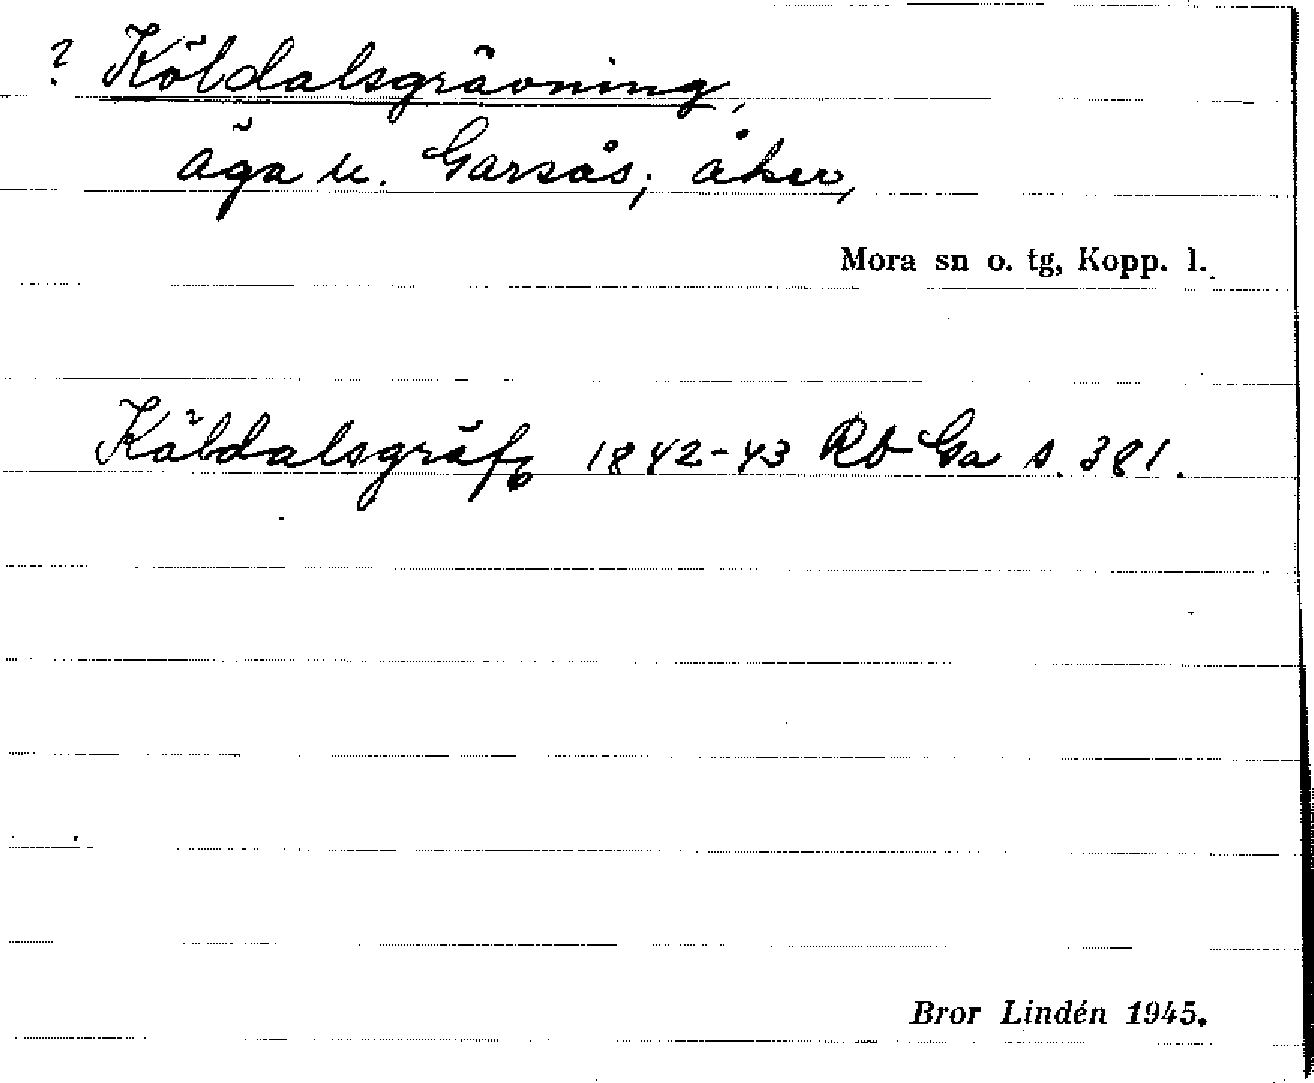 ? Köldalsgrävning,
äga u. Garsås; åker,
Mora sn o. tg, Kopp. l.
Köldalsgräfg 1842-43 Rb Ga s. 381.
Bror Lindén 1945.